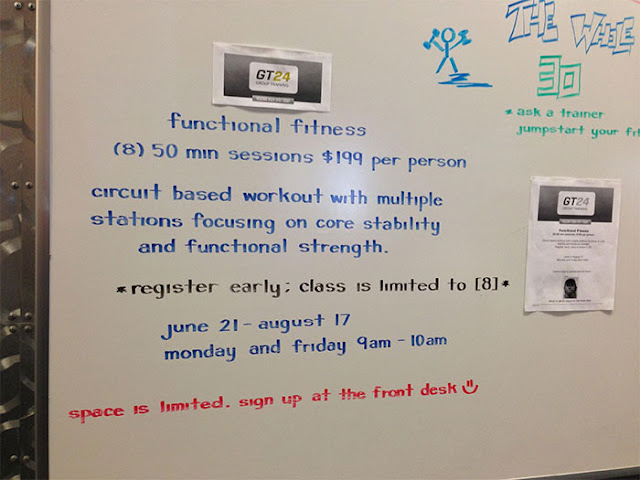 GT24
GROUP TRAINING
functional fitness
(8) 50 min sessions $199 per person
circuit based workout with multiple
stations focusing on core stability
and functional strength.
*register early; class is limited to [8]*
june 21 - august 17
monday and friday 9am - 10am
space is limited. sign up at the front desk
THE WHOLE
30
* ask a trainer
jumpstart your fit
GT24
GROUP TRAINING
Functional Fitness